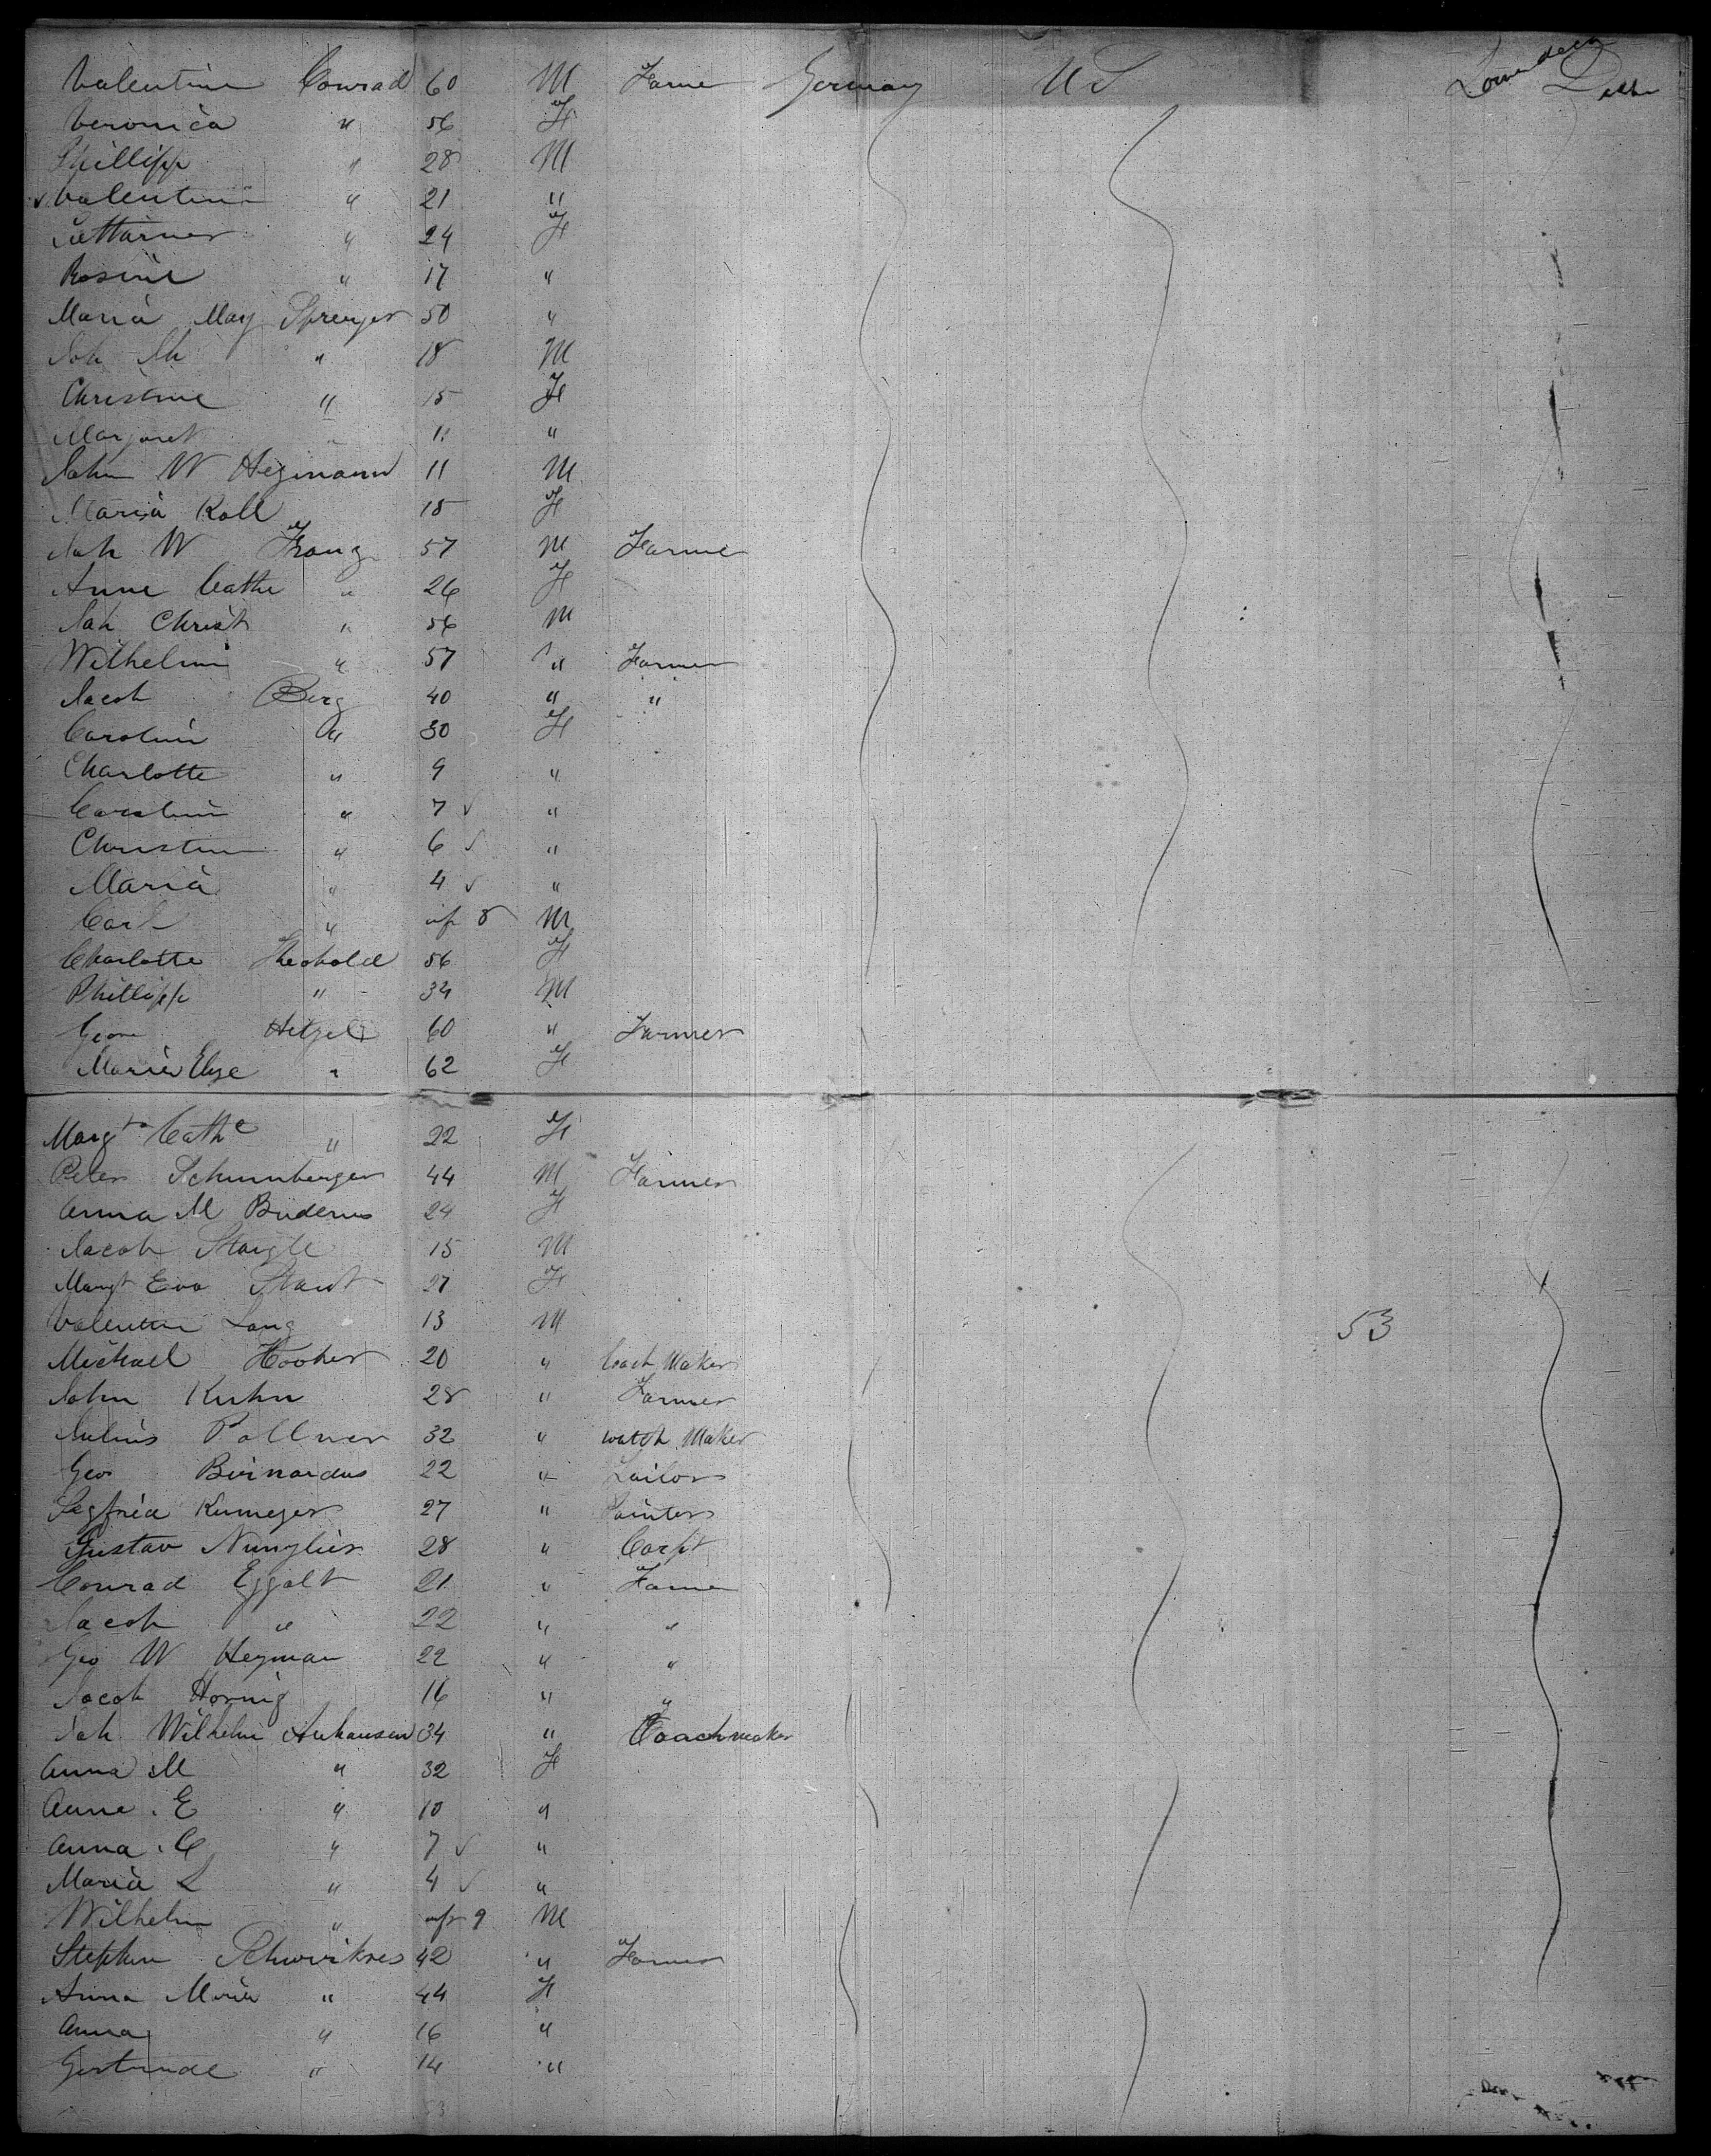 Valentine Conrad 60 M Farmer Germany US Lower deck
Veronica " 56 F
Phillipp " 28 M
Valentine " 21 "
24 F
Rosine " 17 "
Maria Mag Sprenger 50 "
Joh " 18 M
Christine " 15 F
Margaret " 11 "
John W Hegmann 11 M
Maria Koll 15 F
Joh W Franz 57 M Farmer
Anne Cathe " 26 F
Joh Christ " 56 M
Wilhelm " 57 " Farmer
Jacob Berg 40 " "
Carolin " 30 F
Charlotte " 9 "
Carolin " 7 "
Christin " 6 "
Maria " 4 "
Carl " inf 8 M
Charlotte Theobald 56 F
Phillipp " 34 M
Geo Hetzel 60 " Farmer
Maria Elise " 62 F
Margt Cathe " 22 F
Peter Schunberger 44 M Farmer
Anna M Buderus 24 F
Jacob Staigle 15 M
Margt Eva Staut 27 F
Valentin Lang 13 M 53
Michael Hooher 20 " Coach Maker
John Kuhn 28 " Farmer
Julius Pollner 32 " Watch Maker
Geo Beinardus 22 " Tailor
Segfried Kumeyer 27 " Painter
Gustav 28 " Carpt
Conrad Eggolt 21 " Farmer
Jacob " 22 " "
Geo W Heyman 22 " "
Jacob Hornig 16 " "
Joh Wilhelm Anhausen 34 " Coachmaker
Anna M " 32 F
Anne E " 10 "
Anna C " 7 "
Maria L " 4 "
Wilhelm " inf 9 M
Stephen 42 " Farmer
Anna Maria " 44 F
Anna " 16 "
Gertrude " 14 "
53